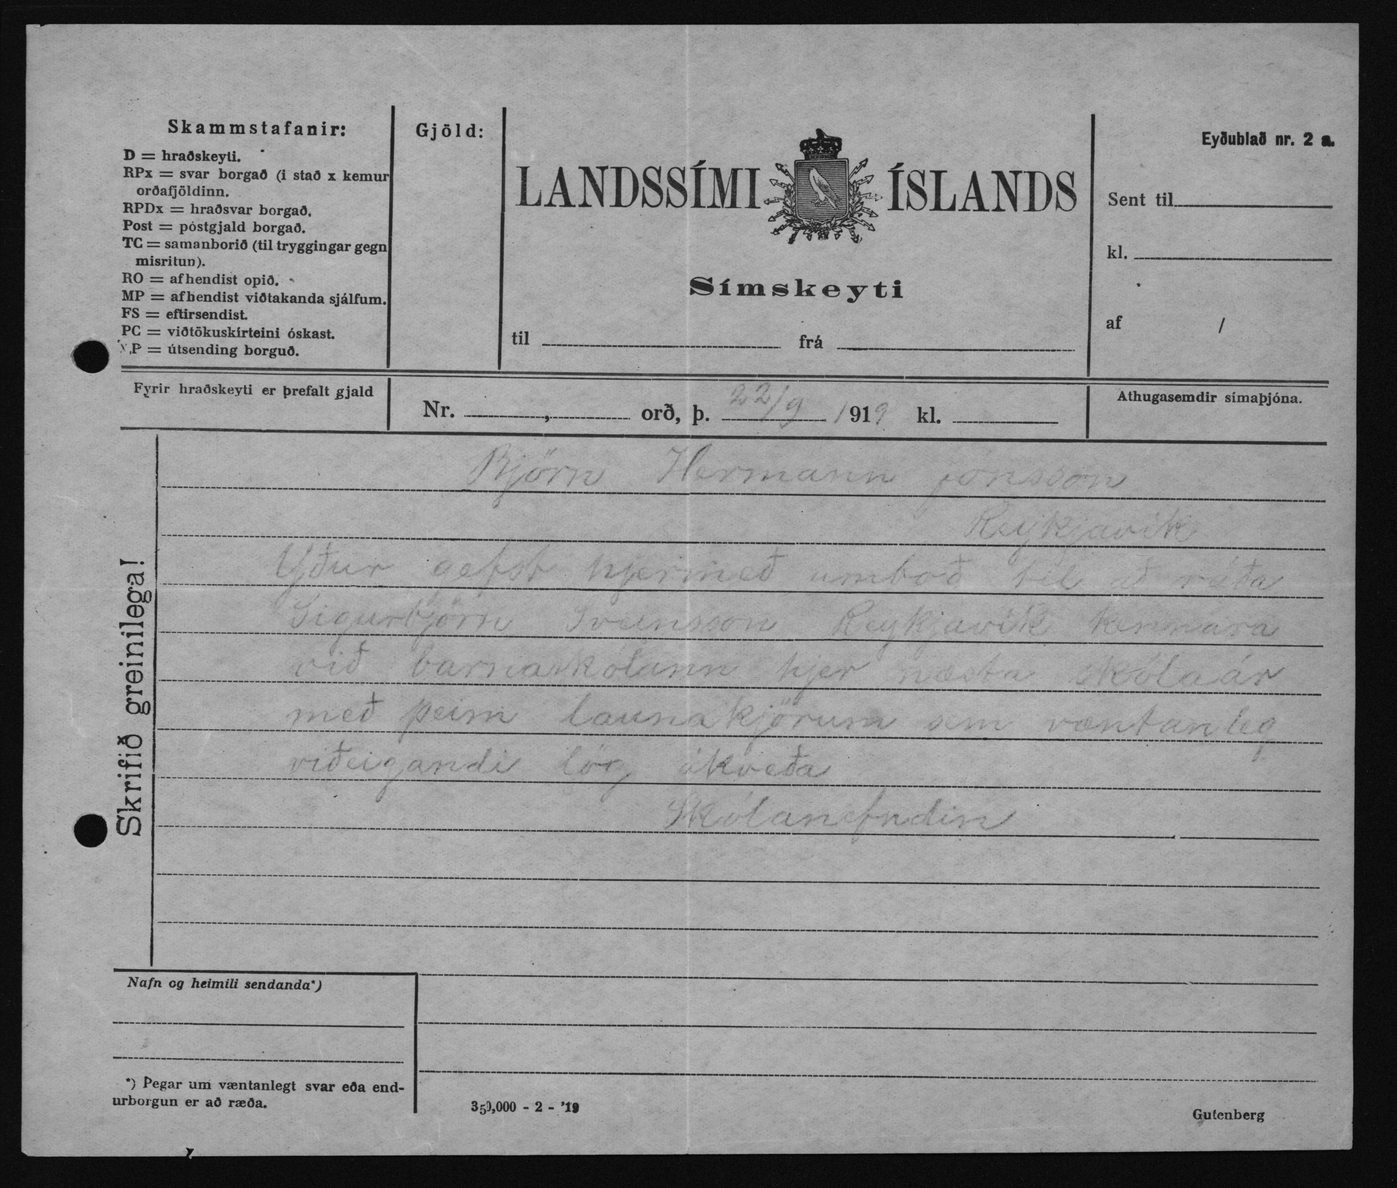 Skammstafanir:
D = hraðskeyti.
RPx = svar borgað (i stað x kemur
orðafjöldinn.
RPDx = hraðsvar borgað.
Post = póstgjald borgað.
TC = samanborið (til tryggingar gegn
misritun).
RO = afhendist opið.
MP = afhendist viðtakanda sjálfum.
FS = eftirsendist.
PC = viðtökuskírteini óskast.
XP = útsending borguð.
Fyrir hraðskeyti er þrefalt gjald
Gjöld:
LANDSSÍMI ÍSLANDS
Símskeyti
til frá
Eyðublað nr. 2 a.
Sent til
kl.
af /
Nr. , orð, þ. 22/9 1919 kl.
Athugasemdir símaþjóna.
Skrifið greinilega!
Björn Hermann Jónsson
Reykjavík
Yður gefst hjermeð umboð til að ráða
Sigurbjörn Sveinsson Reykjavík kennara
við barnaskólann hjer næsta skólaár
með þeim launakjörum sem væntanleg
viðeigandi lög ákveða
Skólanefndin
Nafn og heimili sendanda*)
*) Þegar um væntanlegt svar eða end-
urborgun er að ræða.
350,000 - 2 - '19
Gutenberg